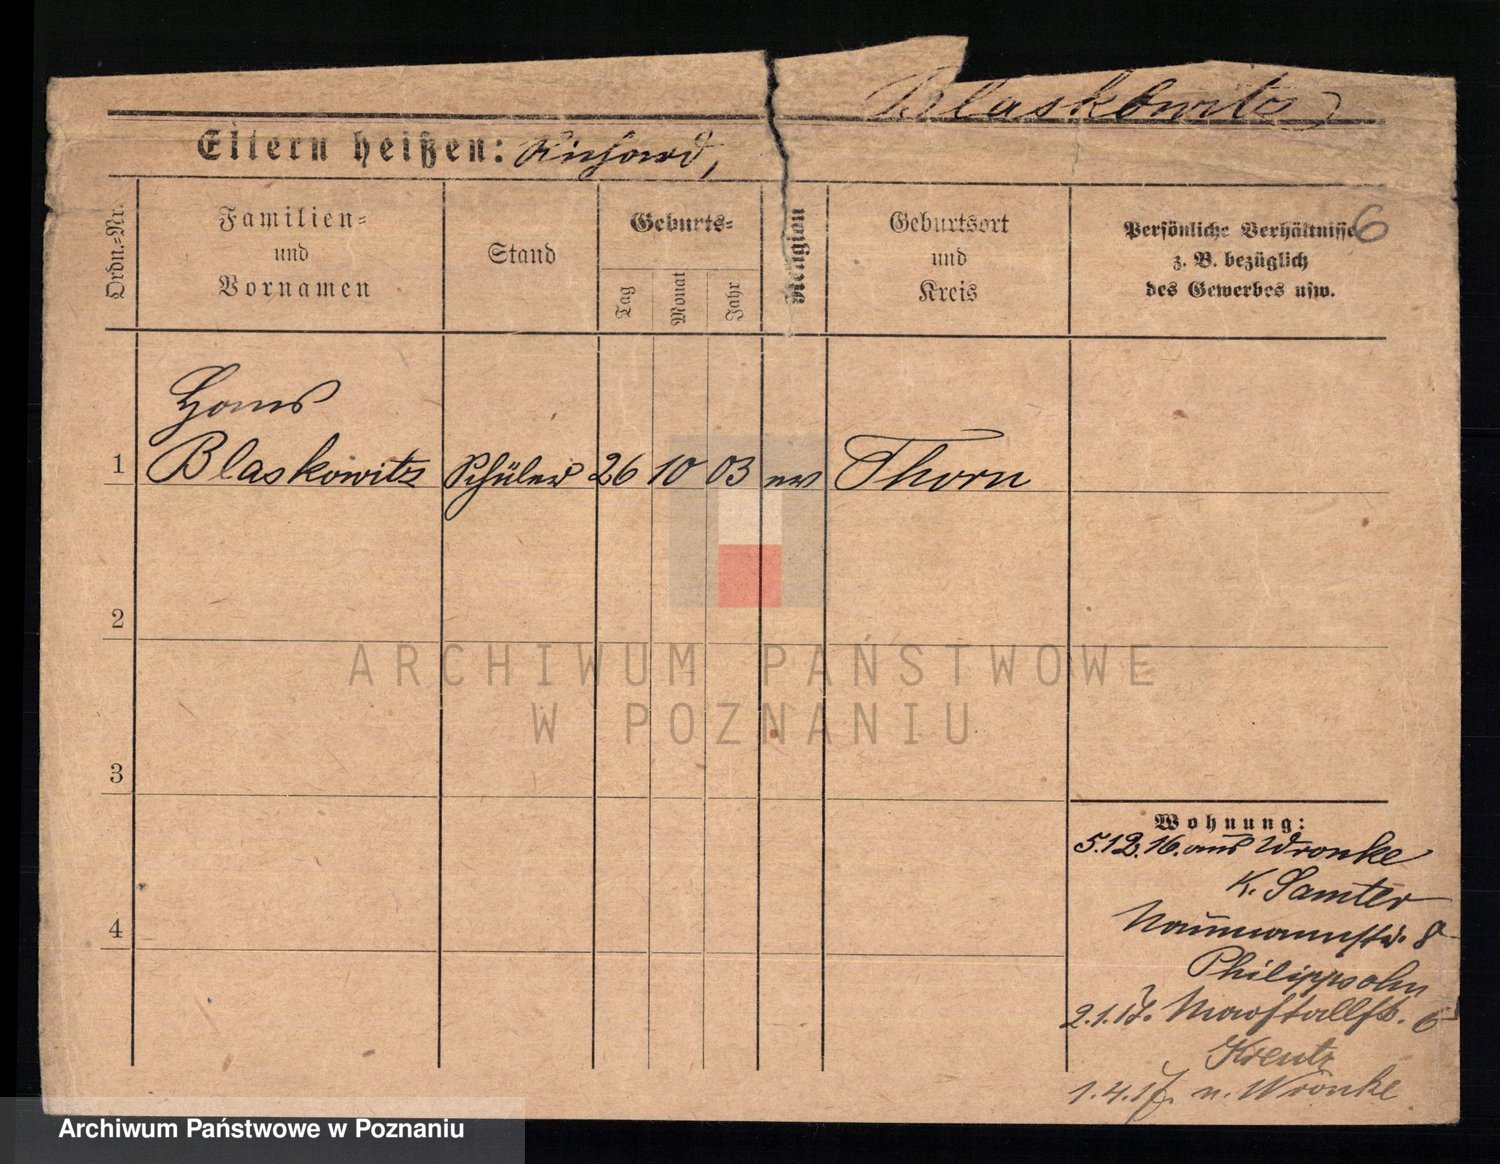 Blaskowitz
Eltern heißen: Richard,
Ordn.=Nr.
Familien=
und
Vornamen
Stand
Geburts=
Tag
Monat
Jahr
Religion
Geburtsort
und
Kreis
Persönliche Verhältnisse 6
z. B. bezüglich
des Gewerbes usw.
Hans
1 Blaskowitz Schüler 26 10 03 ev Thorn
2
3
4
Wohnung:
5.12.16. aus Wronke
K. Samter
Naumannstr. 8
Philippsohn
2.1.17. Marstallstr. 6
Kreutz
1.4.17. n. Wronke
ARCHIWUM PAŃSTWOWE
W POZNANIU
Archiwum Państwowe w Poznaniu